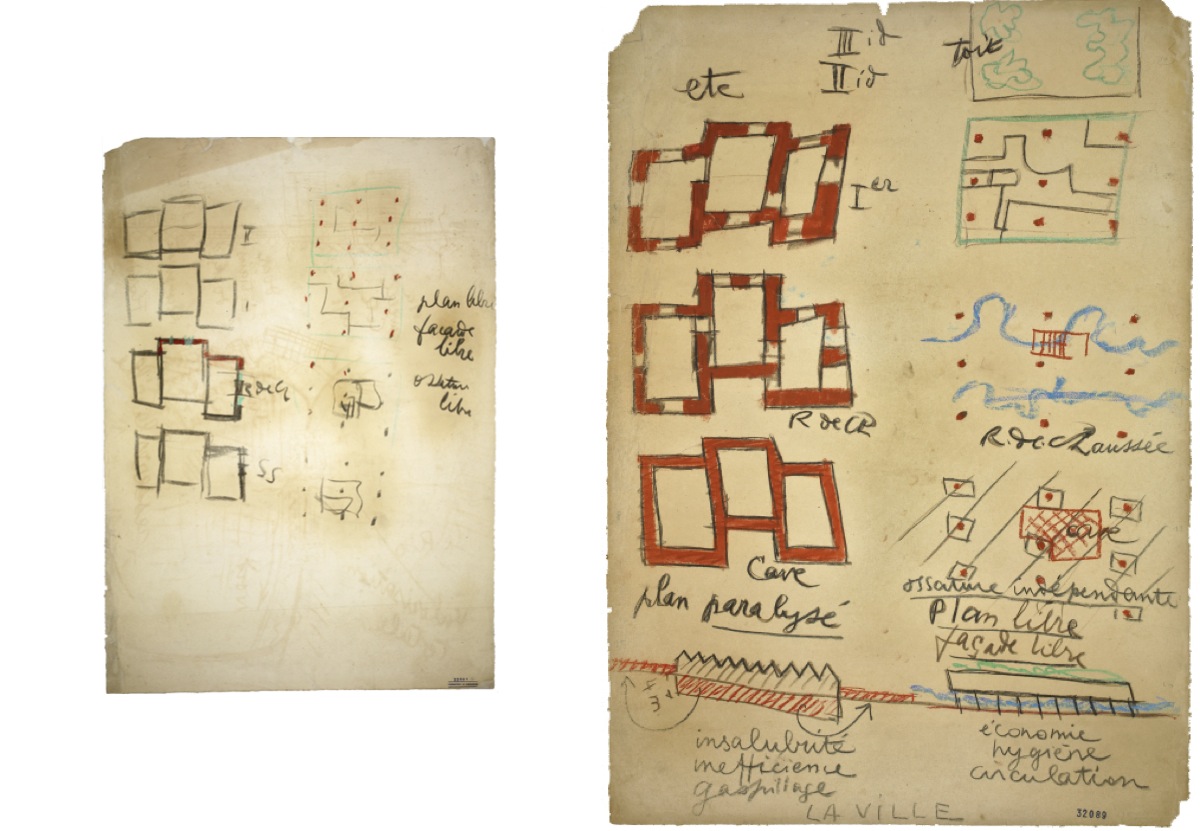 II
I
plan libre
façade
libre
R de Ch
libre
SS
III id
II id
toit
etc
I er
R de Ch
R. de chaussée
cave
Cave
ossature indépendante
plan paralysé
Plan libre
façade libre
insalubrité
inefficience
gaspillage
économie
hygiène
circulation
LA VILLE
32089